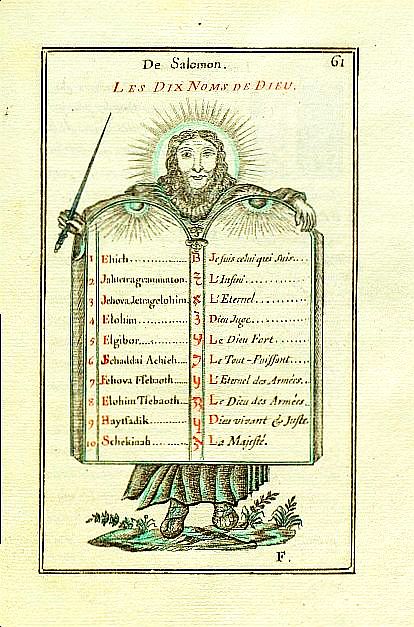 De Salomon. 61
LES DIX NOMS DE DIEU.
1 Ehieh B Je suis celui qui suis
2 Jahtetragrammaton L'Infini
3 Jehova Jetragelohim L'Eternel
4 Elohim 3 Dieu Juge
5 Elgibor Le Dieu Fort
6 Schaddai Achieh Le Tout-Puissant
7 Jehova Tsebaoth L'Eternel des Armées
8 Elohim Tsebaoth Le Dieu des Armées
9 Haytsadik Dieu vivant & Juste
10 Schekinah La Majesté.
F.